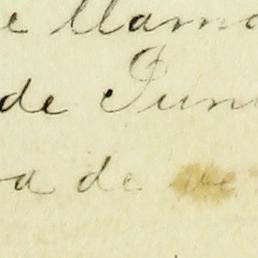 e llama
de Juni
a de ve